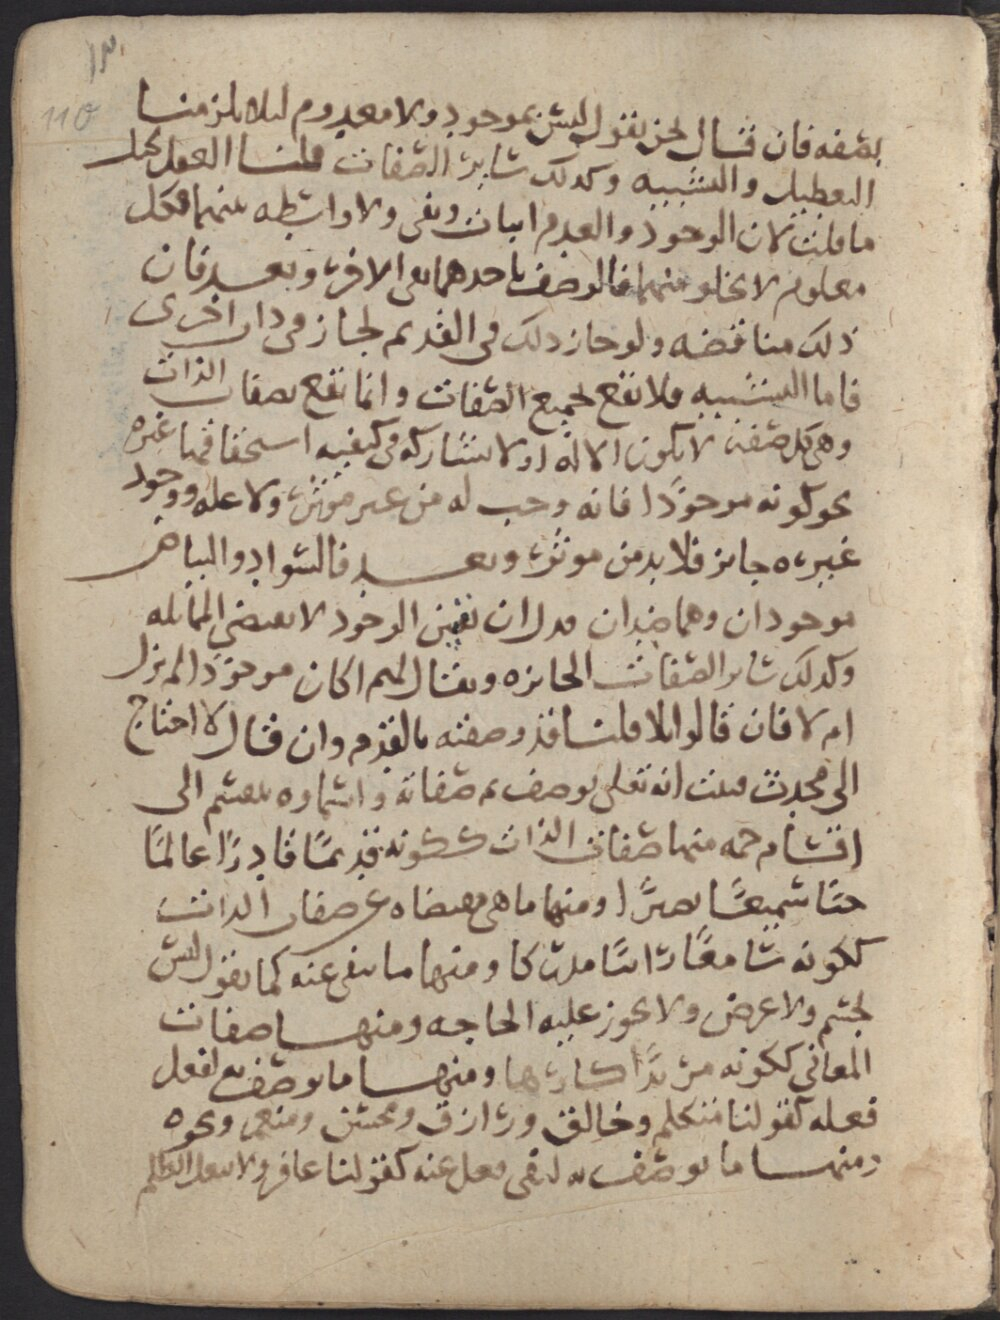 ١٣
110
بصفه فان قال نحن نقول ليس بموجود ولا معدوم لئلا يلزمنا
التعطيل والتشبيه وكذلك سائر الصفات قلنا القول بكل
ما قلت لان الوجود والعدم اثبات ونفي ولا واسطه بينهما فكل
معلوم لا يخلو منهما فالوصف باحدهما نفي الاخر وبعد فان
ذلك مناقضه ولو جاز ذلك في القديم لجاز في دار اخرى
فاما التشبيه فلا يقع بجميع الصفات وانما تقع بصفات الذات
وهي كل صفة لا يكون الا له او لا يشاركه في كيفيه استحقاقها غيره
نحو كونه موجودًا فانه وجب له من غير موثر ولا عله ووجود
غيره جايز فلا بد من موثر وبعد فالسواد والبياض
موجودان وهما ضدان فدل ان نفس الوجود لا يقتضي المماثله
وكذلك سائر الصفات الجائزه ويقال لهم اكان موجودًا لم يزل
ام لا فان قالوا بلا قلنا فقد وصفته بالقدم وان قال لا احتاج
الى محدث قلت انه تعلى يوصف بصفاته واسماوه ينقسم الى
اقسام جمه منها صفات الذات ككونه قديمًا قادرًا عالمًا
حيًا سميعًا بصيرًا ومنها ما هي مقتضاه عن صفات الذات
ككونه سامعًا رائيًا مدركا ومنها ما ينفى عنه كما يقول ليس
بجسم ولا عرض ولا يجوز عليه الحاجه ومنها صفات
المعاني ككونه مريدًا كارها ومنها ما يوصف به لفعل
فعله كقولنا متكلم وخالق ورازق ومحسن ومنعم ونحوه
ومنها ما يوصف به لنفي فعل عنه كقولنا عافر ولا يفعل الظلم